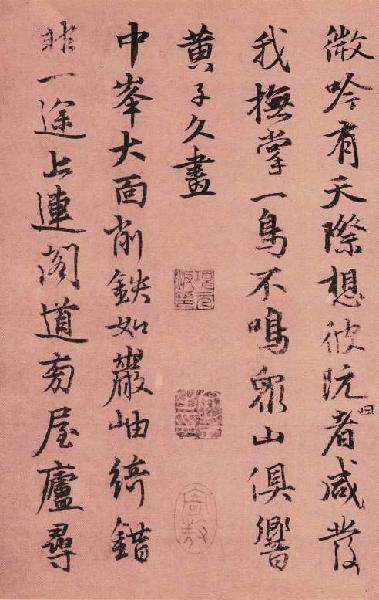 微吟有天際想彼阮者咸發
我撫掌一鳥不鳴衆山俱響
黃子久畫
中峯大面削鉄如巖岫綺錯
非一途上連閣道旁屋廬尋